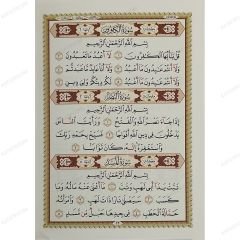 سُورَةُ الكَافِرُونَ
بِسْمِ اللَّهِ الرَّحْمَٰنِ الرَّحِيمِ
قُلْ يَٰٓأَيُّهَا ٱلْكَٰفِرُونَ ١ لَآ أَعْبُدُ مَا تَعْبُدُونَ ٢
وَلَآ أَنتُمْ عَٰبِدُونَ مَآ أَعْبُدُ ٣ وَلَآ أَنَا۠ عَابِدٌ مَّا عَبَدتُّمْ ٤
وَلَآ أَنتُمْ عَٰبِدُونَ مَآ أَعْبُدُ ٥ لَكُمْ دِينُكُمْ وَلِيَ دِينِ ٦
سُورَةُ النَّصْرِ
بِسْمِ اللَّهِ الرَّحْمَٰنِ الرَّحِيمِ
إِذَا جَآءَ نَصْرُ ٱللَّهِ وَٱلْفَتْحُ ١ وَرَأَيْتَ ٱلنَّاسَ
يَدْخُلُونَ فِي دِينِ ٱللَّهِ أَفْوَاجًا ٢ فَسَبِّحْ بِحَمْدِ رَبِّكَ
وَٱسْتَغْفِرْهُ إِنَّهُۥ كَانَ تَوَّابًۢا ٣
سُورَةُ المَسَدِ
بِسْمِ اللَّهِ الرَّحْمَٰنِ الرَّحِيمِ
تَبَّتْ يَدَآ أَبِي لَهَبٍ وَتَبَّ ١ مَآ أَغْنَىٰ عَنْهُ مَالُهُۥ وَمَا
كَسَبَ ٢ سَيَصْلَىٰ نَارًا ذَاتَ لَهَبٍ ٣ وَٱمْرَأَتُهُۥ
حَمَّالَةَ ٱلْحَطَبِ ٤ فِي جِيدِهَا حَبْلٌ مِّن مَّسَدٍۭ ٥